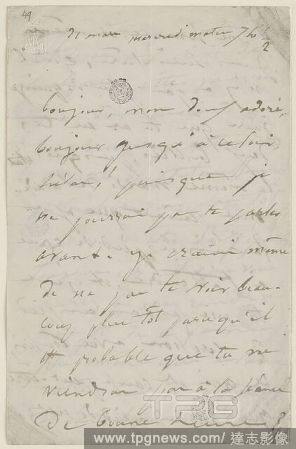 49
21 mars mercredi matin 7h ½
bonjour, mon doux adoré,
bonjour jusqu'à ce soir
hélas! puisque je
ne pourrai pas te parler
avant. je crains même
de ne pas te voir beau-
coup plus tôt parce qu'il
est probable que tu ne
viendras pas à la
de bonne heure
TPG
www.tpgnews.com/達志影像